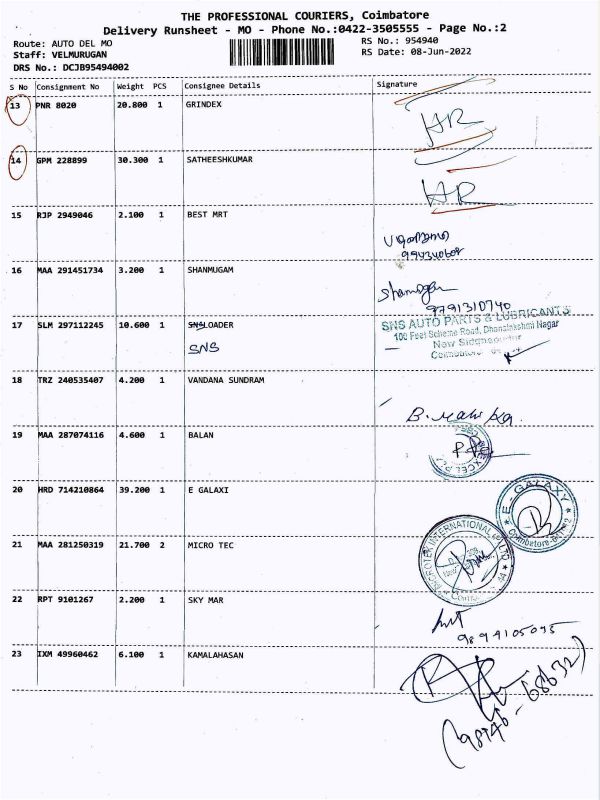 THE PROFESSIONAL COURIERS, Coimbatore
Delivery Runsheet - MO - Phone No.:0422-3505555 - Page No.:2
Route: AUTO DEL MO
RS No.: 954940
Staff: VELMURUGAN
RS Date: 08-Jun-2022
DRS No.: DCJB95494002
S No Consignment No Weight PCS Consignee Details Signature
13 PNR 8020 20.800 1 GRINDEX
HR
14 GPM 228899 30.300 1 SATHEESHKUMAR
HR
15 RJP 2949046 2.100 1 BEST MRT
16 MAA 291451734 3.200 1 SHANMUGAM
9791310740
17 SLM 297112245 10.600 1 SNSLOADER
SNS
SNS AUTO PARTS & LUBRICANTS
100 Feet Scheme Road, Dhanalakshmi Nagar
18 TRZ 240535407 4.200 1 VANDANA SUNDRAM
19 MAA 287074116 4.600 1 BALAN
20 HRD 714210864 39.200 1 E GALAXI
E - GALAXY
21 MAA 281250319 21.700 2 MICRO TEC
22 RPT 9101267 2.200 1 SKY MAR
23 IXM 49960462 6.100 1 KAMALAHASAN